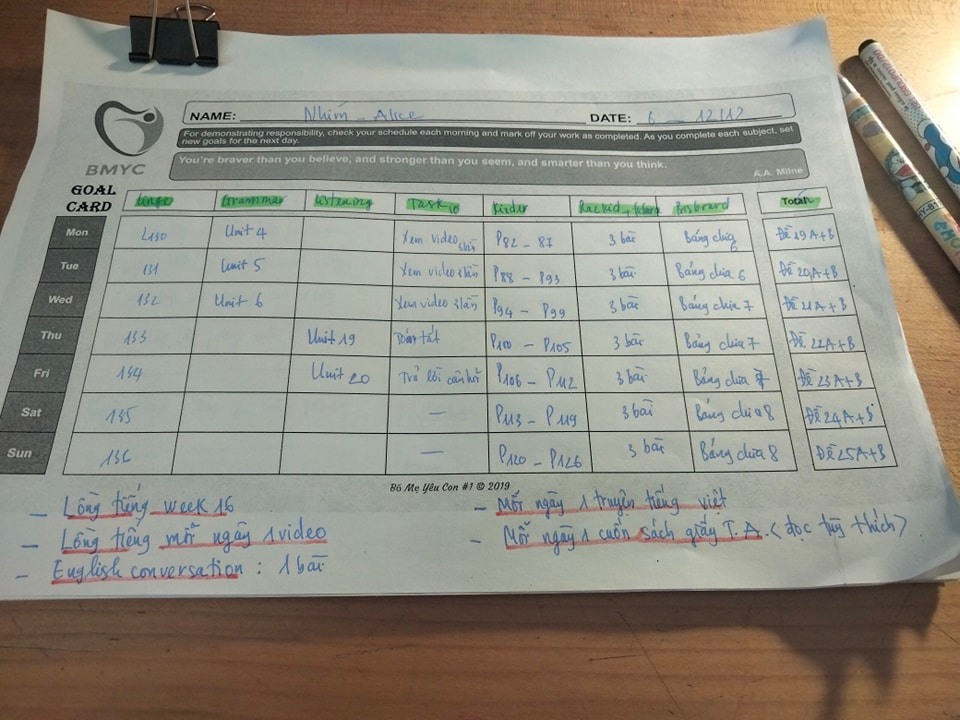 BMYC
NAME: Nhím - Alice DATE: 6 - 12/12
For demonstrating responsibility, check your schedule each morning and mark off your work as completed. As you complete each subject, set
new goals for the next day.
You're braver than you believe, and stronger than you seem, and smarter than you think.
A.A. Milne
GOAL CARD Grammar Listening Task 10 Toán
Mon L130 Unit 4 Xem video 3 lần P82 - 87 3 bài Bảng chia 6 Đề 19A+B
Tue 131 Unit 5 Xem video 3 lần P88 - P93 3 bài Bảng chia 6 Đề 20A+B
Wed 132 Unit 6 Xem video 3 lần P94 - P99 3 bài Bảng chia 7 Đề 21A+B
Thu 133 Unit 19 Tóm tắt P100 - P105 3 bài Bảng chia 7 Đề 22A+B
Fri 134 Unit 20 Trả lời câu hỏi P106 - P112 3 bài Bảng chia 7 Đề 23A+B
Sat 135 — P113 - P119 3 bài Bảng chia 8 Đề 24A+B
Sun 136 — P120 - P126 3 bài Bảng chia 8 Đề 25A+B
Bố Mẹ Yêu Con #1 © 2019
- Lồng tiếng week 16
- Lồng tiếng mỗi ngày 1 video
- English conversation : 1 bài
- Mỗi ngày 1 truyện tiếng việt
- Mỗi ngày 1 cuốn sách giấy T.A. (đọc tùy thích)